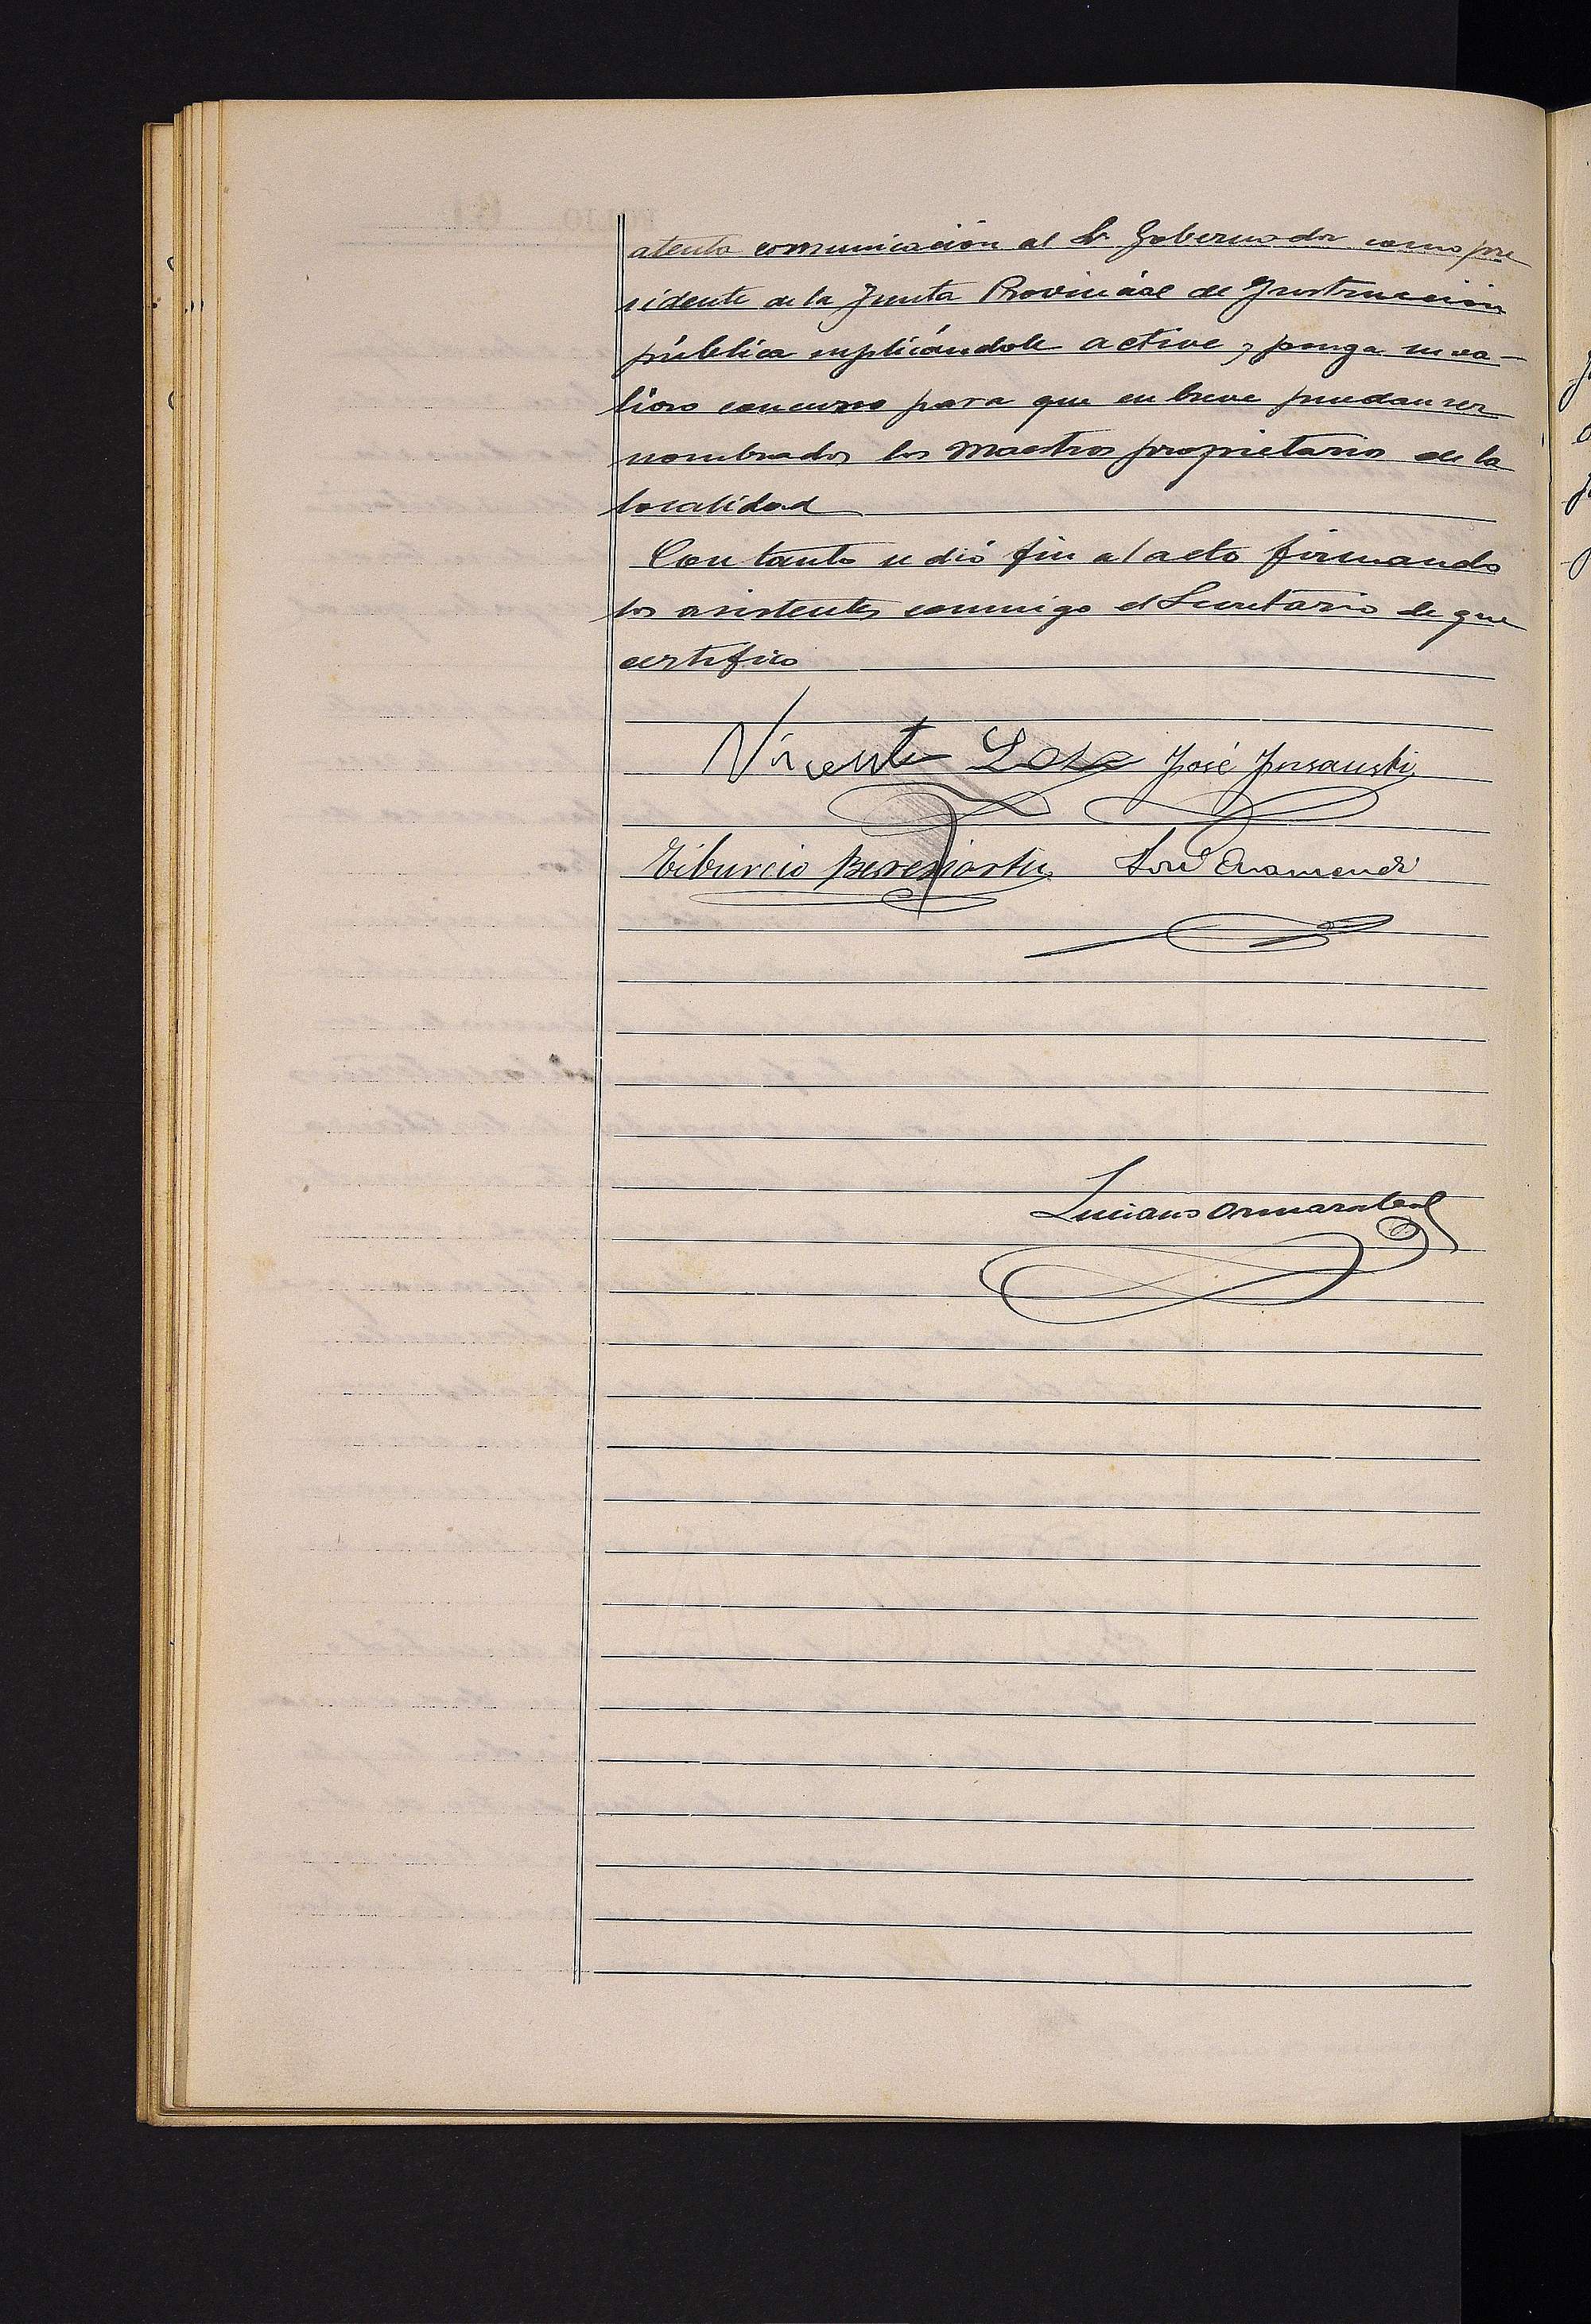 atenta comunicación al Sr Gobernador como pre
sidente de la Junta Provincial de Instrucción
pública suplicándole active y ponga su va-
lioso concurso para que en breve puedan ser
nombrados los Maestros propietarios de la
localidad
Con tanto se dió fin al acto firmando
los asistentes conmigo el Secretario de que
certifico
Vicente José Insausti
Tiburcio Bereziartu José Aramendi
Luciano